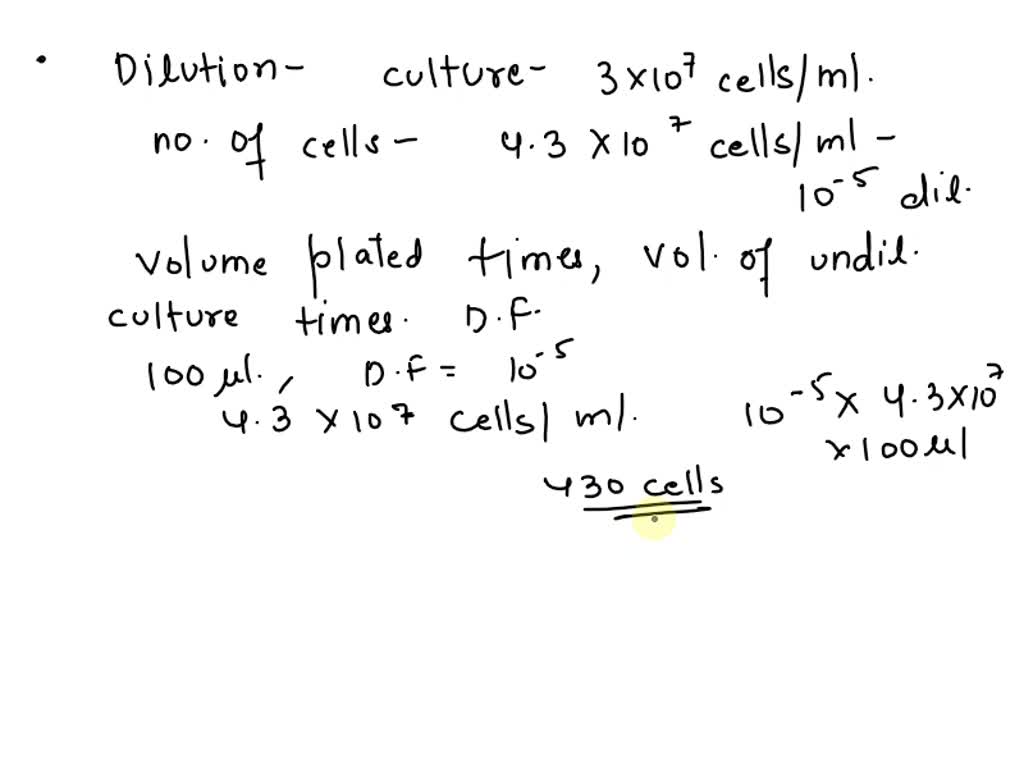 • Dilution- culture- 3×10⁷ cells/ml.
no. of cells- 4.3 ×10⁷ cells/ml -
10⁻⁵ dil.
volume plated times, vol. of undil.
culture times. D.F.
100 μl., D.F = 10⁻⁵
4.3 ×10⁷ cells/ml.
10⁻⁵× 4.3×10⁷
×100μl
430 cells